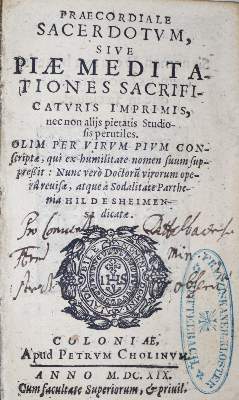 PRAECORDIALE
SACERDOTVM,
SIVE
PIÆ MEDITA-
TIONES SACRIFI-
CATVRIS IMPRIMIS,
nec non alijs pietatis Studio-
sis perutiles.
OLIM PER VIRVM PIVM CON-
scriptæ, qui ex humilitate nomen suum sup-
pressit: Nunc verò Doctorũ virorum ope-
râ revisæ, atque à Sodalitate Parthe-
nia HILDESHEIMEN-
sa dicatæ.
IHS
COLONIAE,
Apud PETRVM CHOLINVM.
ANNO M. DC. XIX.
Cum facultate Superiorum, & privil.